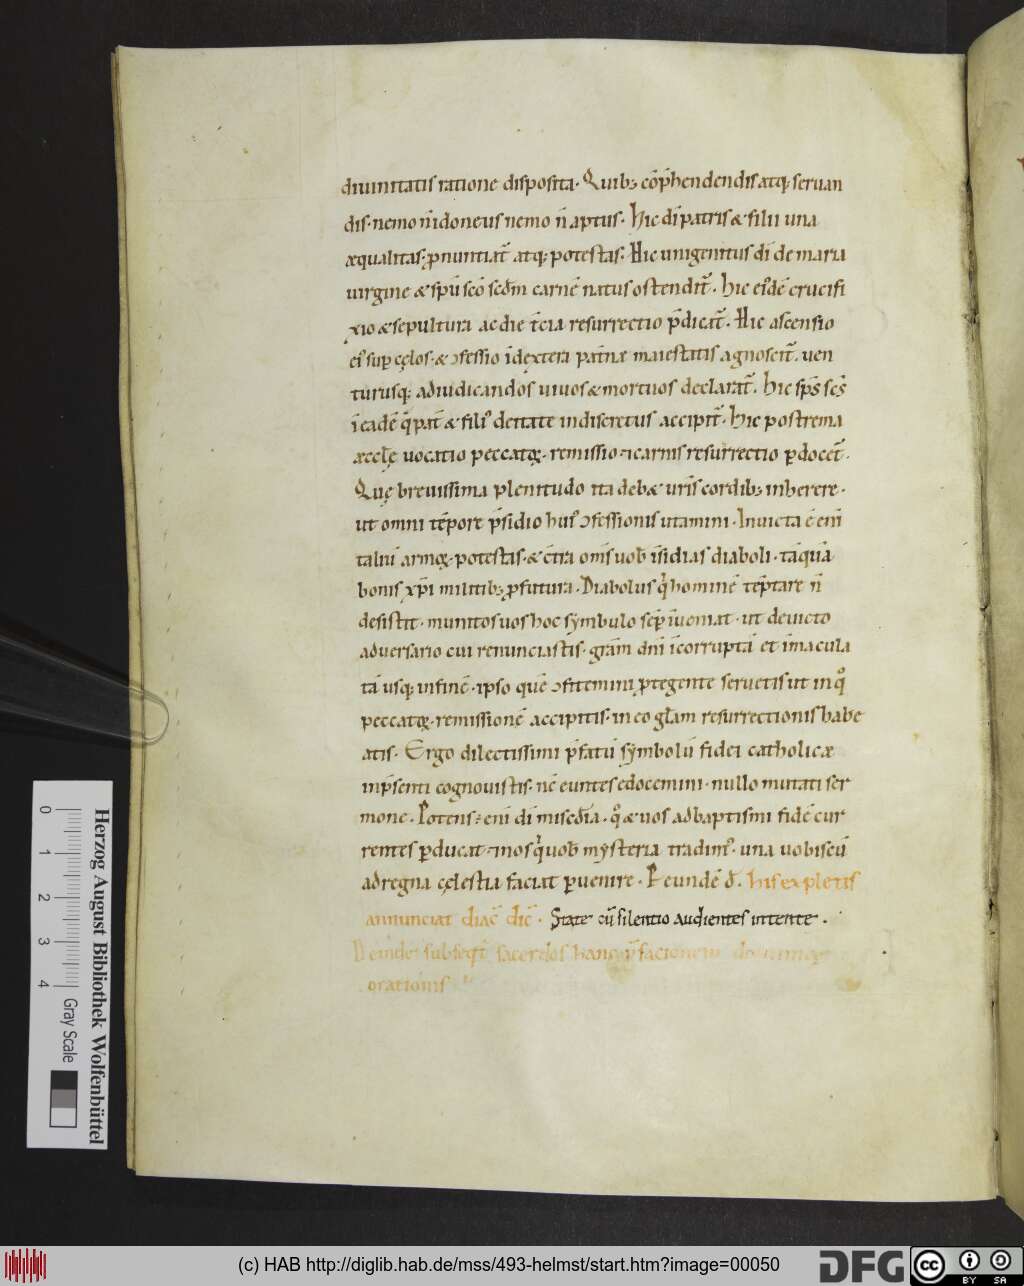 diuinitatis ratione disposita. Quib; cōp̄hendendis atq; seruan
dis. nemo n̄ idoneus nemo n̄ aptus. Hic dī patris & filii una
æqualitas; ꝓnuntiat̄ atq; potestas. Hic unigenitus dī de maria
uirgine & sp̄u sc̄o scd̄m carnē natus ostendit̄. hic eiꝰdē crucifi
xio & sepultura ac die t̄cia resurrectio p̄dicat̄. Hic ascensio
eiꝰ sup cęlos. & ɔfessio ī dextera pat̄næ maiestatis agnoscit̄. uen
turusq; ad iudicandos uiuos & mortuos declarat̄. hic sp̄s sc̄s
ī eadē q̄ pat̄ & filiꝰ deitate indiscretus accipit̄. hic postrema
æccl̄ę uocatio peccatoꝝ. remissio ⁊ carnis resurrectio ꝑdocet̄.
Quę breuissima plenitudo ita deb& ur̄is cordib; inherere.
ut omni tēpore p̄sidio huiꝰ ɔfessionis utamini. Inuicta ē enī
taliū armoꝝ potestas. & cōtra om̄s uob̄ īsidias diaboli. tāquā
bonis xp̄i militib; ꝓfutura. Diabolus qͥ hominē tēptare n̄
desistit. munitos uos hoc symbulo sēp īueniat. ut deuicto
aduersario cui renunciastis. grām dn̄i īcorruptā et īmacula
tā usq; in finē. ipso quē ɔfitemini ꝓtegente seruetis ut in qͦ
peccatoꝝ. remissionē accipitis. in eo gl̄am resurrectionis habe
atis. Ergo dilectissimi p̄fatū symbolū fidei catholicæ
in p̄senti cognouistis. nē euntes edocemini. nullo mutati ser
mone. Potens; enī dī misc̄dia. qͦ & uos ad baptismi fidē cur
rentes ꝑducat. ⁊ nos qͥ uob̄ mysteria tradimꝰ. una uobiscū
ad regna cęlestia faciat ꝑuenire. P eundē d̄. his expletis
annunciat diac̄ dic̄. State cū silentio audientes intente.
Deinde subseqt̄ sacerdos hanc p̄facionem dominicæ
orationis
Herzog August Bibliothek Wolfenbüttel
0 1 2 3 4 Gray Scale
(c) HAB http://diglib.hab.de/mss/493-helmst/start.htm?image=00050
DFG
cc BY SA